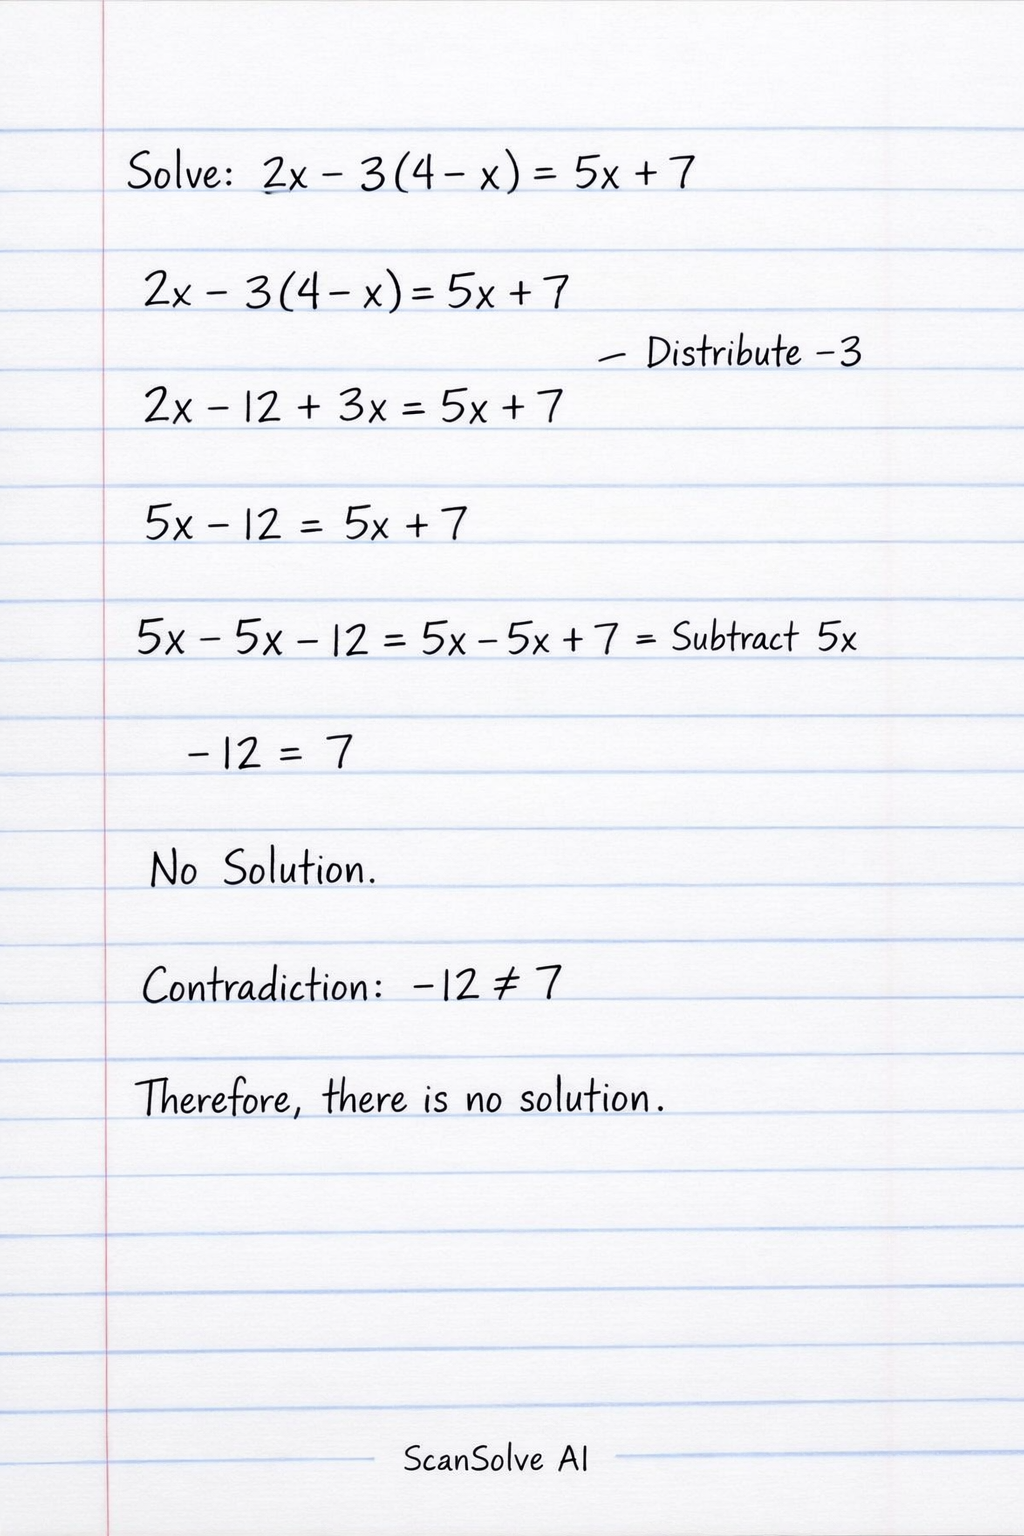 Solve: 2x - 3(4 - x) = 5x + 7
2x - 3(4 - x) = 5x + 7
— Distribute -3
2x - 12 + 3x = 5x + 7
5x - 12 = 5x + 7
5x - 5x - 12 = 5x - 5x + 7 = Subtract 5x
-12 = 7
No Solution.
Contradiction: -12 ≠ 7
Therefore, there is no solution.
ScanSolve AI